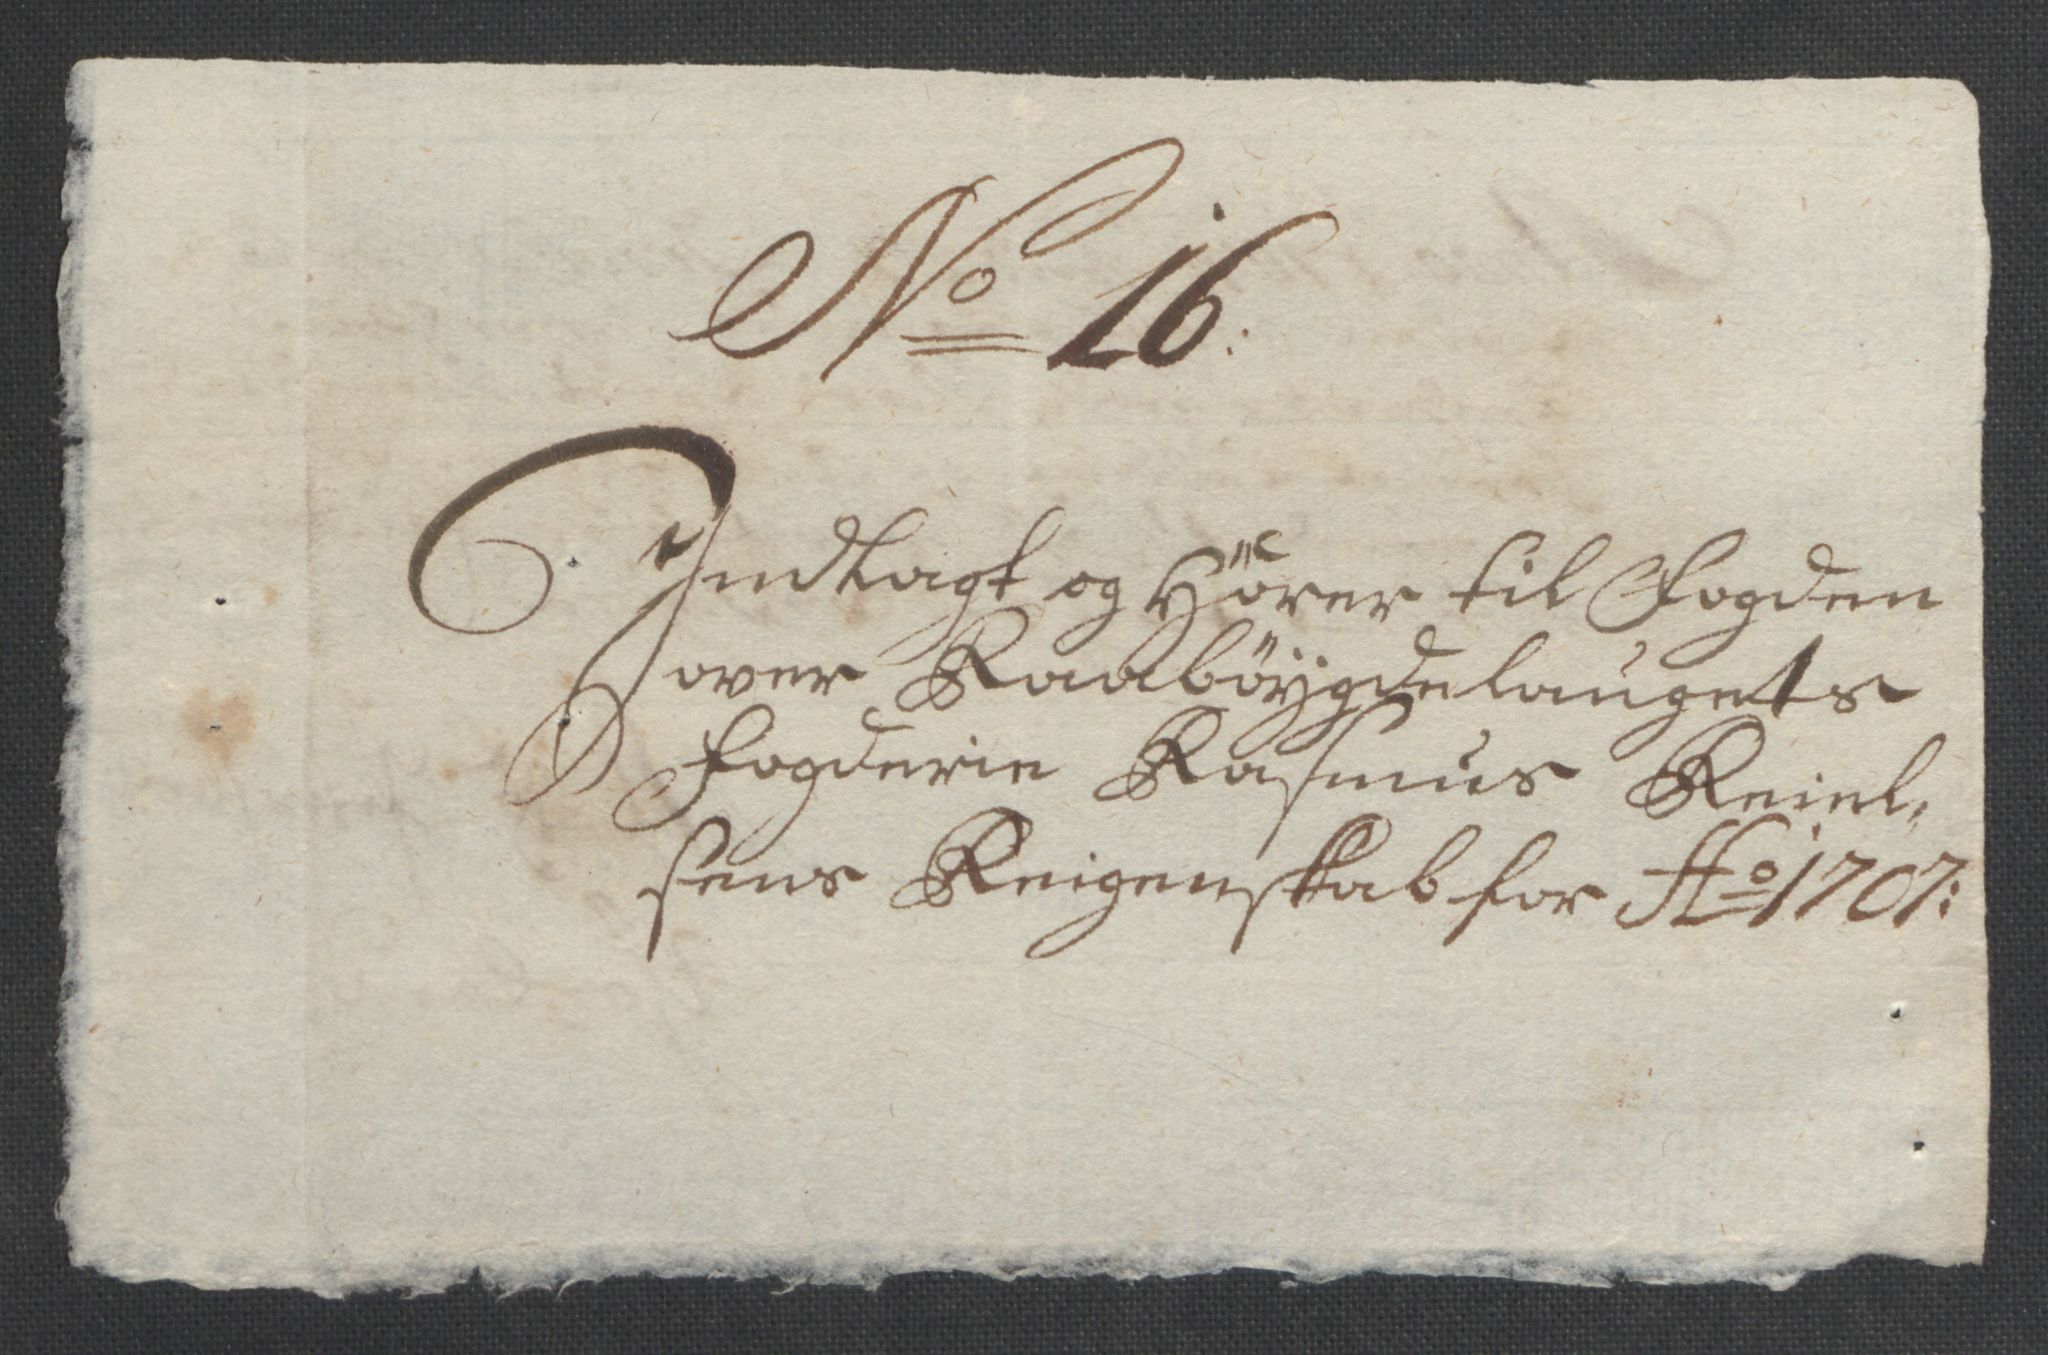 No 16:
Indlagt og Hörer til Fogden
over Raaböygdelaugets
Fogderie Rasmus Reiel,
sens Reigenskab for Ao 1707: